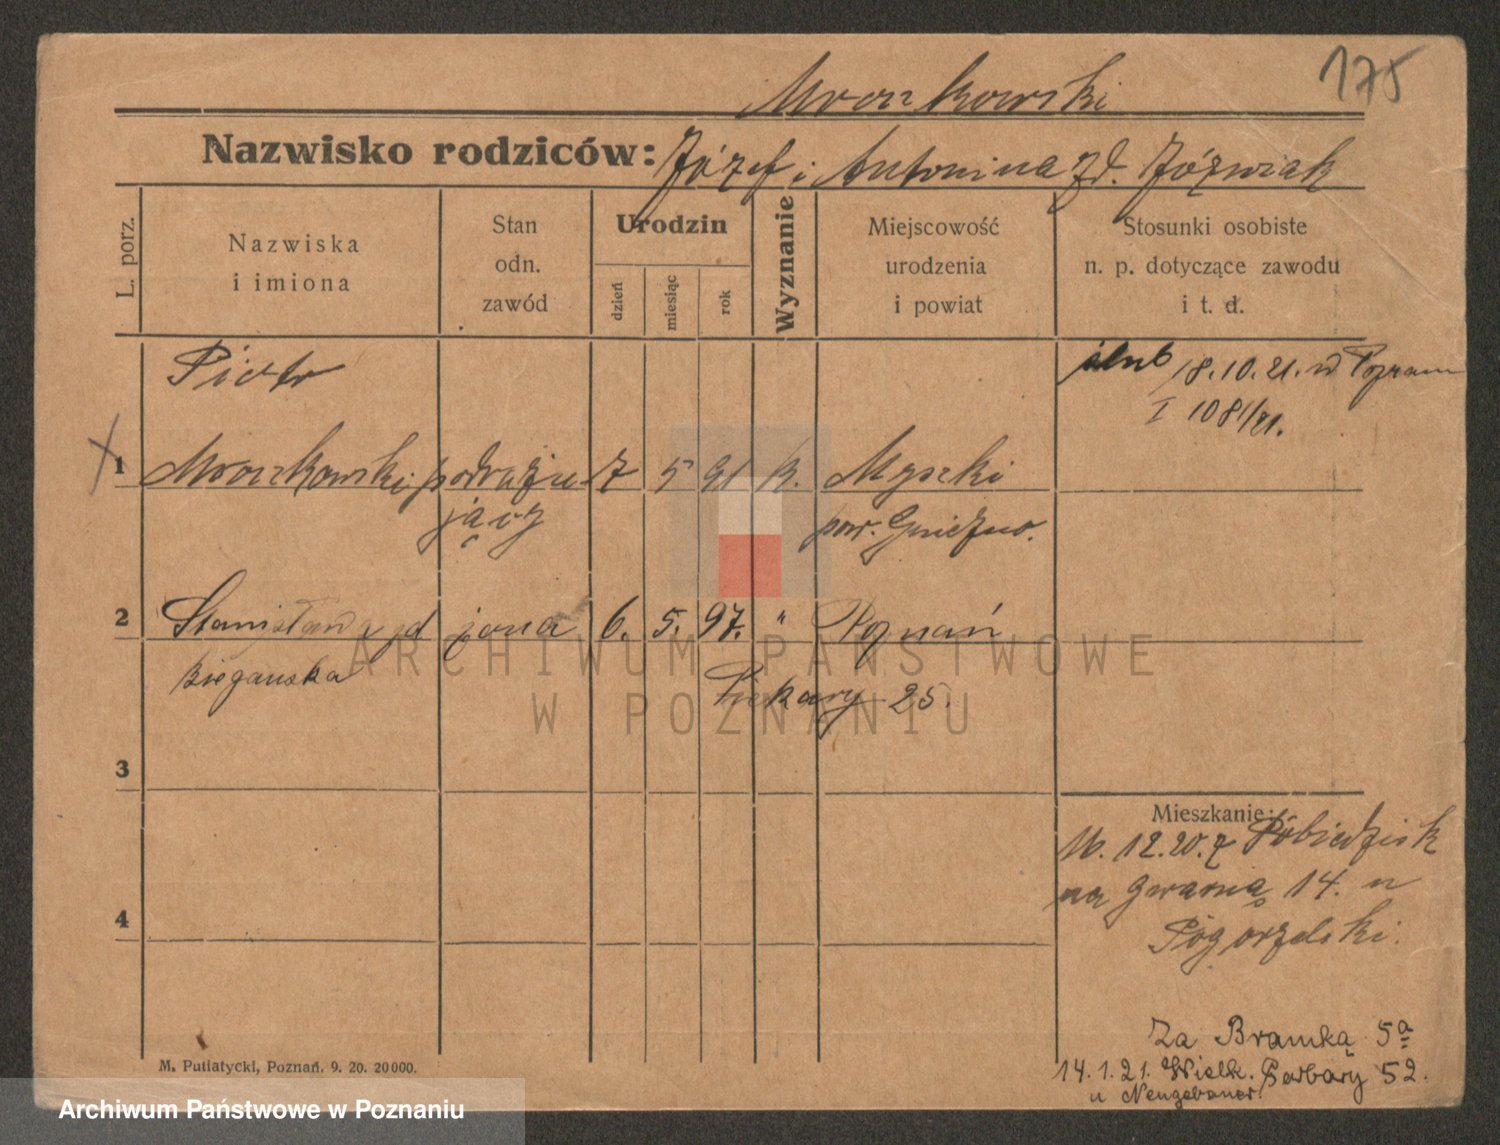 175
Mroczkowski
Nazwisko rodziców: Józef i Antonina zd. Józwiak
L. porz.
Nazwiska
i imiona
Stan
odn.
zawód
Urodzin
dzień
miesiąc
rok
Wyznanie
Miejscowość
urodzenia
i powiat
Stosunki osobiste
n. p. dotyczące zawodu
i t. d.
Piotr
ślub 18.10.21. w Poznaniu
I 1081/21.
1 Mroczkowski podróżu- 7 5 91 k. Myszki
jący pow. Gniezno.
2 Stanisława zd żona 6. 5. 97. " Poznań
Bieganska Piekary 25.
3
Mieszkanie:
16. 12.20. z Pobiedzisk
na Gwarną 14. u
Pogorzelski.
4
Za Bramką 5a
14.1.21. Wielk. Garbary 52.
u Neugebauer.
M. Putiatycki, Poznań. 9. 20. 20000.
ARCHIWUM PAŃSTWOWE
W POZNANIU
Archiwum Państwowe w Poznaniu